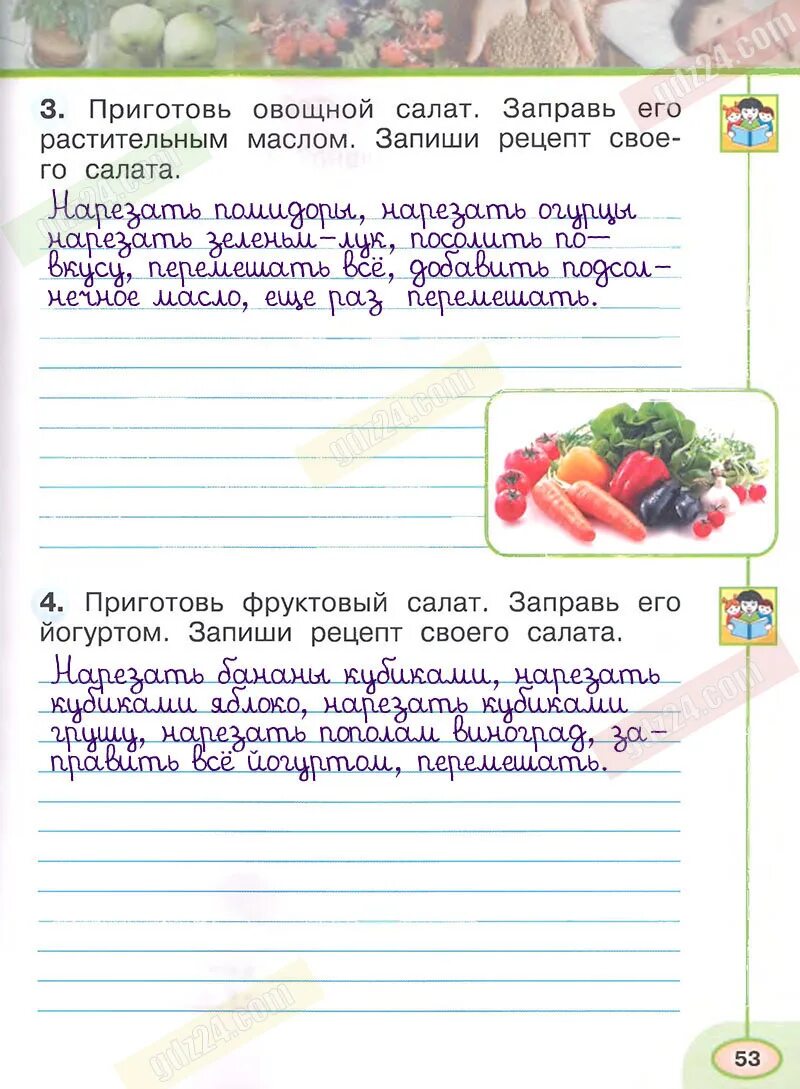 3. Приготовь овощной салат. Заправь его
растительным маслом. Запиши рецепт свое-
го салата.
Нарезать помидоры, нарезать огурцы
нарезать зеленьм-лук, посолить по-
вкусу, перемешать всё, добавить подсол-
нечное масло, еще раз перемешать.
4. Приготовь фруктовый салат. Заправь его
йогуртом. Запиши рецепт своего салата.
Нарезать бананы кубиками, нарезать
кубиками яблоко, нарезать кубиками
грушу, нарезать пополам виноград, за-
править всё йогуртом, перемешать.
53
gdz24.com
gdz24.com
gdz24.com
gdz24.com
gdz24.com